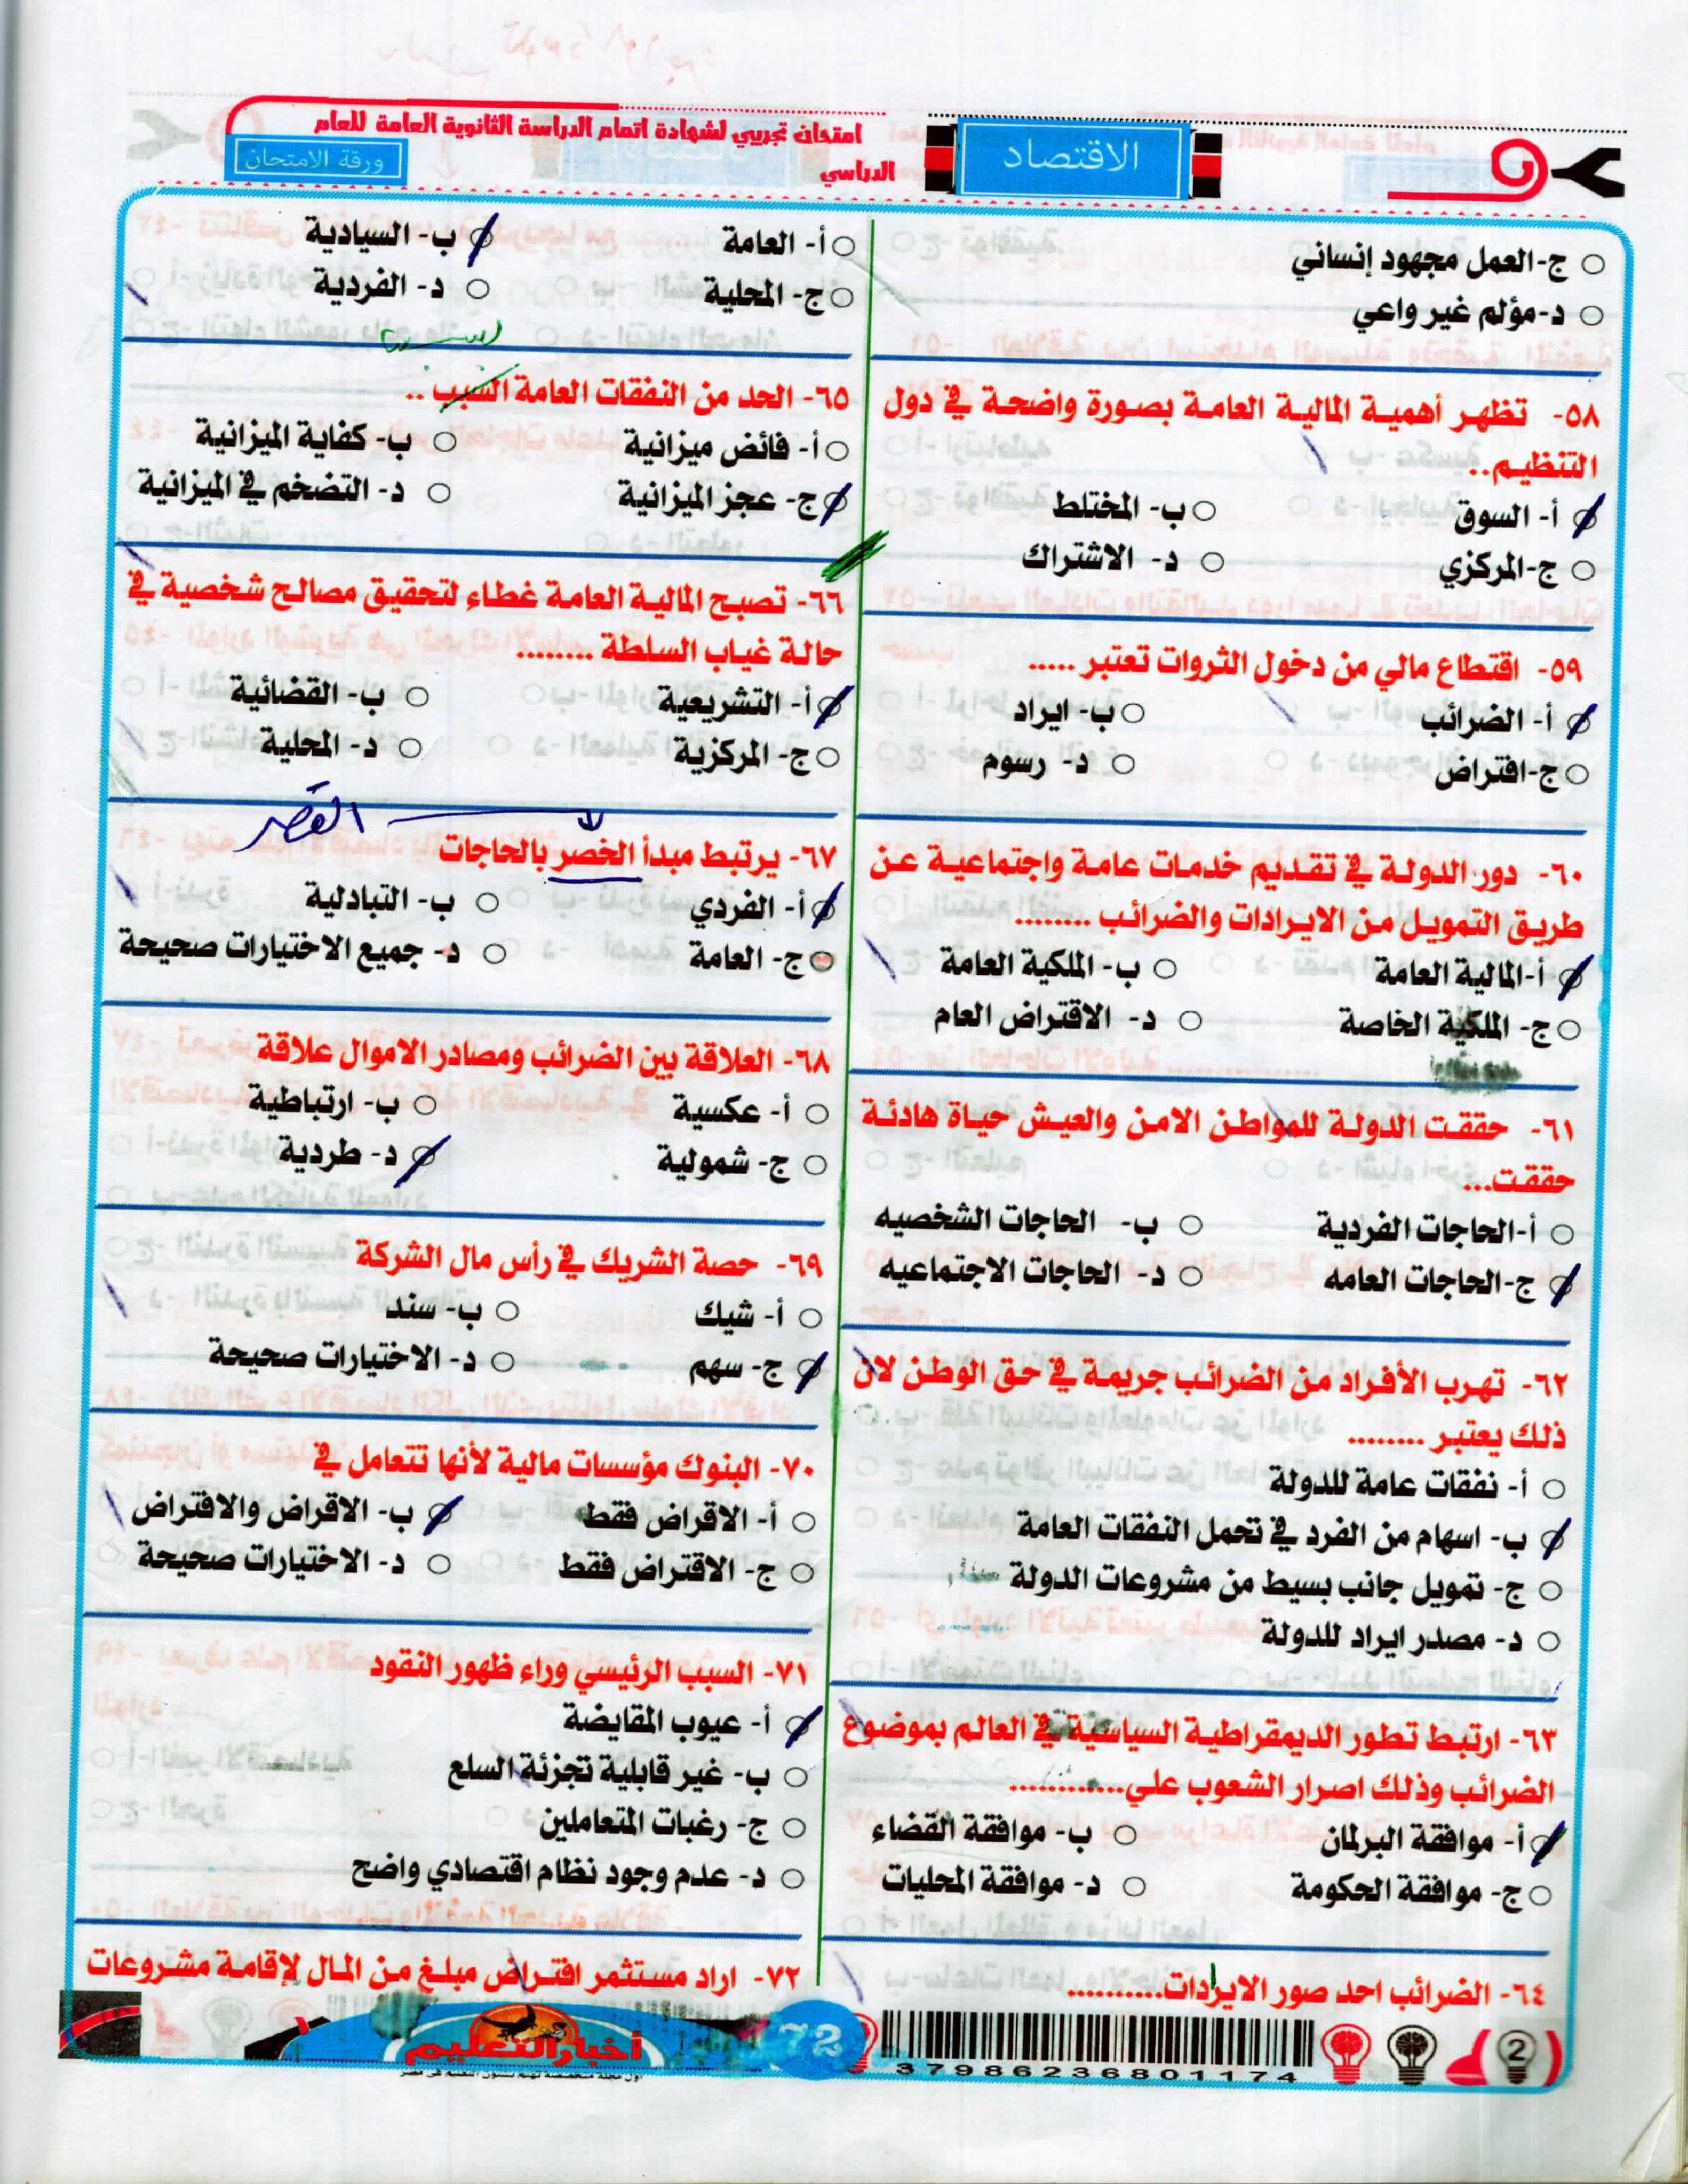 امتحان تجريبي لشهادة اتمام الدراسة الثانوية العامة للعام
الدراسي
ورقة الامتحان
الاقتصاد
ج-العمل مجهود إنساني
د-مؤلم غير واعي
٥٨- تظهر أهمية المالية العامة بصورة واضحة في دول
التنظيم..
أ- السوق ب- المختلط
ج-المركزي د- الاشتراك
٥٩- اقتطاع مالي من دخول الثروات تعتبر .....
أ- الضرائب ب- ايراد
ج-افتراض د- رسوم
٦٠- دور الدولة في تقديم خدمات عامة واجتماعية عن
طريق التمويل من الايرادات والضرائب ........
أ-المالية العامة ب- الملكية العامة
ج- الملكية الخاصة د- الاقتراض العام
٦١- حققت الدولة للمواطن الامن والعيش حياة هادئة
حققت...
أ-الحاجات الفردية ب- الحاجات الشخصيه
ج-الحاجات العامه د- الحاجات الاجتماعيه
٦٢- تهرب الأفراد من الضرائب جريمة في حق الوطن لان
ذلك يعتبر ........
أ- نفقات عامة للدولة
ب- اسهام من الفرد في تحمل النفقات العامة
ج- تمويل جانب بسيط من مشروعات الدولة
د- مصدر ايراد للدولة
٦٣- ارتبط تطور الديمقراطية السياسية في العالم بموضوع
الضرائب وذلك اصرار الشعوب علي............
أ- موافقة البرلمان ب- موافقة القضاء
ج- موافقة الحكومة د- موافقة المحليات
٦٤- الضرائب احد صور الايرادات..........
أ- العامة ب- السيادية
ج- المحلية د- الفردية
٦٥- الحد من النفقات العامة السبب ..
أ- فائض ميزانية ب- كفاية الميزانية
ج- عجز الميزانية د- التضخم في الميزانية
٦٦- تصبح المالية العامة غطاء لتحقيق مصالح شخصية في
حالة غياب السلطة ........
أ- التشريعية ب- القضائية
ج- المركزية د- المحلية
القصر
٦٧- يرتبط مبدأ الخصر بالحاجات
أ- الفردي ب- التبادلية
ج- العامة د- جميع الاختيارات صحيحة
٦٨- العلاقة بين الضرائب ومصادر الاموال علاقة
أ- عكسية ب- ارتباطية
ج- شمولية د- طردية
٦٩- حصة الشريك في رأس مال الشركة
أ- شيك ب- سند
ج- سهم د- الاختيارات صحيحة
٧٠- البنوك مؤسسات مالية لأنها تتعامل في
أ- الاقراض فقط ب- الاقراض والاقتراض
ج- الاقتراض فقط د- الاختيارات صحيحة
٧١- السبب الرئيسي وراء ظهور النقود
أ- عيوب المقايضة
ب- غير قابلية تجزئة السلع
ج- رغبات المتعاملين
د- عدم وجود نظام اقتصادي واضح
٧٢- اراد مستثمر اقتراض مبلغ من المال لإقامة مشروعات
أخبار التعليم
72
37986236801174
2